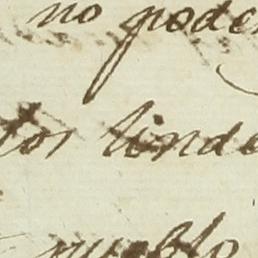 no poder
tos linde
pueblo